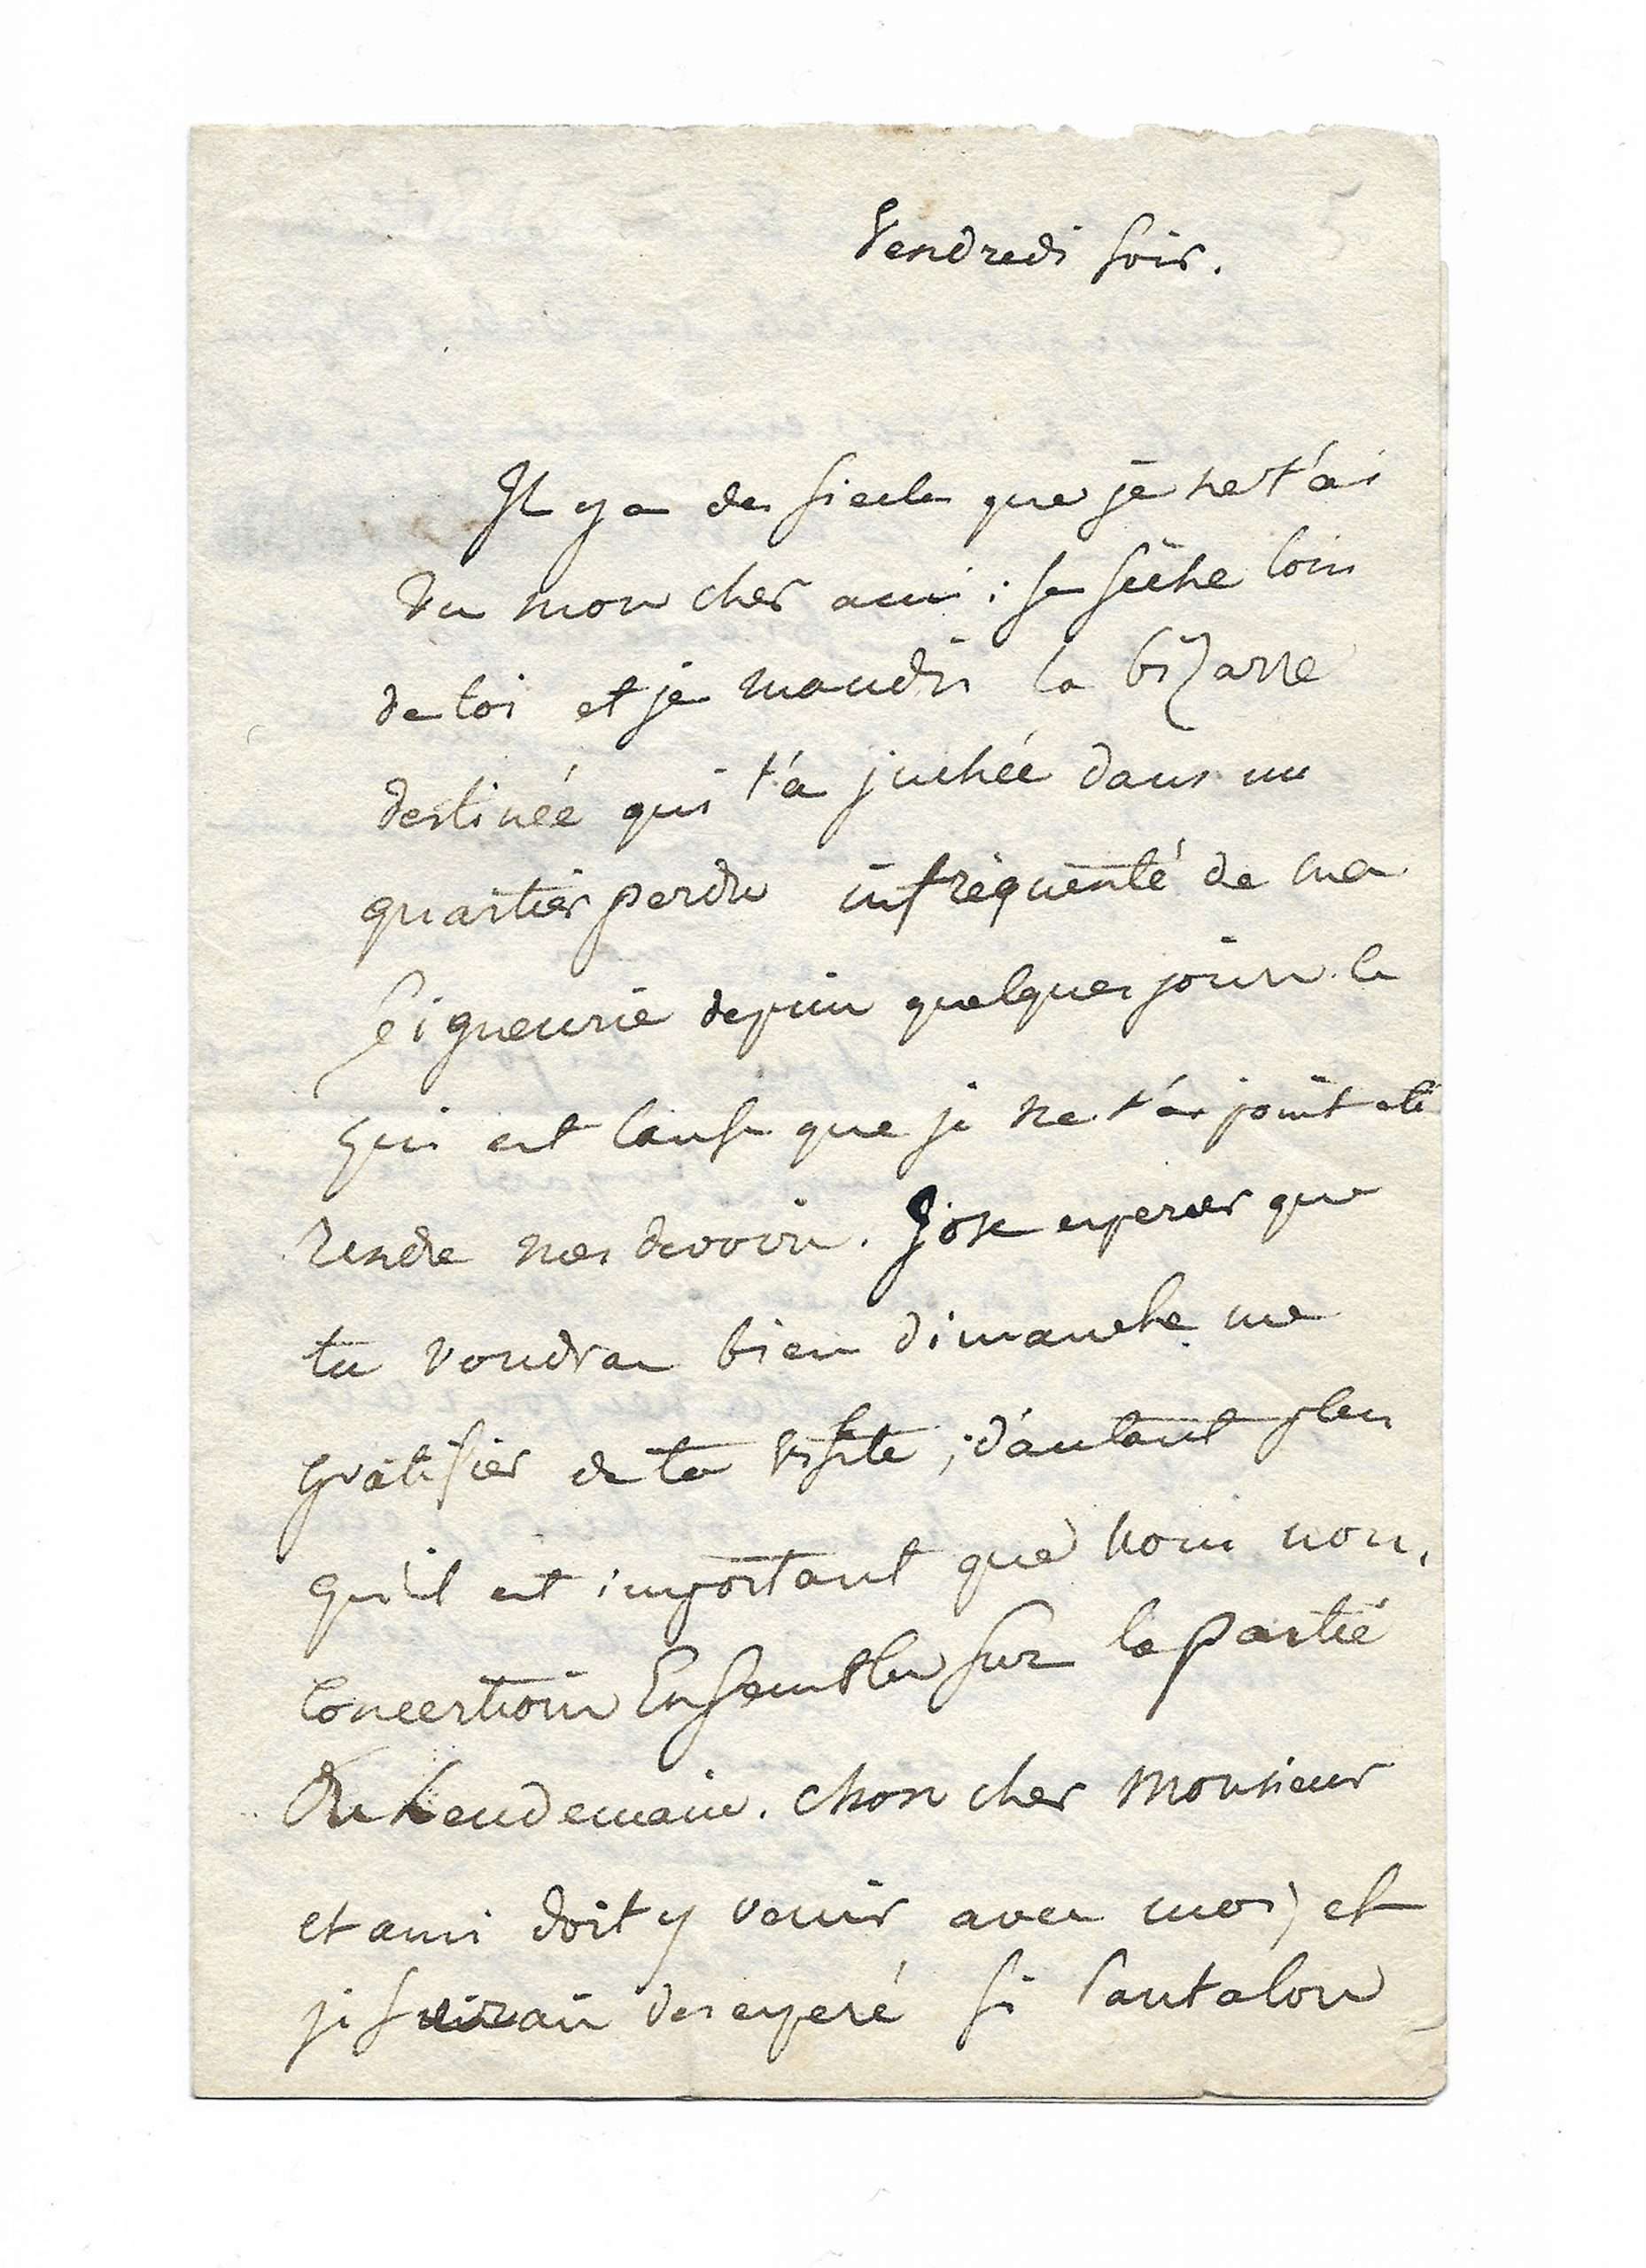 Vendredi soir.
Il y a des siecles que je ne t'ai
vu mon cher ami : je sèche loin
de toi et je maudis la bizarre
destinée qui t'a juchée dans un
quartier perdu infréquenté de ma
seigneurie depuis quelques jours ce
qui est cause que je ne t'ai point été
rendre mes devoirs. J'ose esperer que
tu voudras bien dimanche me
gratifier de ta visite, d'autant plus
qu'il est important que nous nous
concertions ensemble sur la partie
du Lendemain. Mon cher Monsieur
et ami doit y venir avec moi, et
je serais desesperé si Pantalon